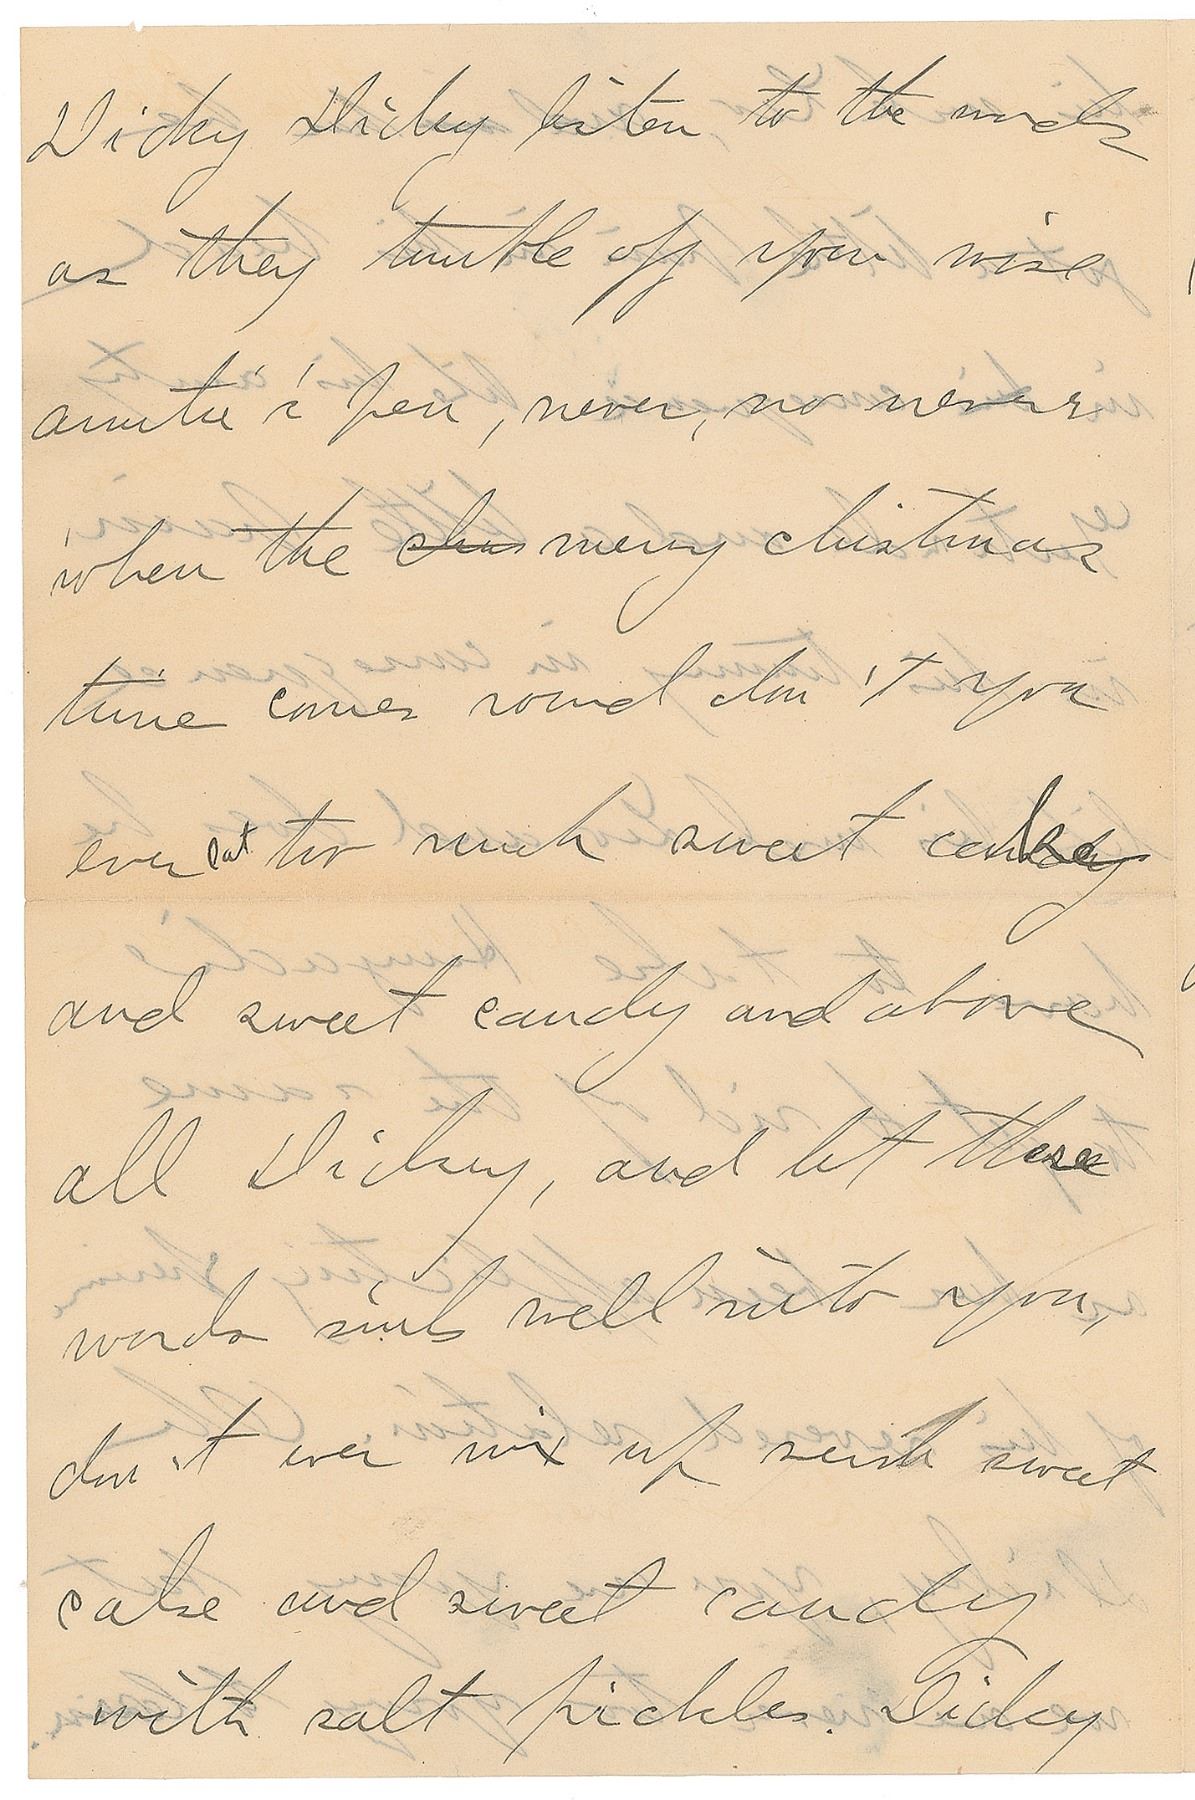 Dicky Dicky listen to the words
as they tumble off your wise
auntie's pen, never, no never
when the chris merry christmas
time comes round don't you
ever eat too much sweet cake
and sweet candy and above
all Dicky, and let these
words sink well into you,
don't ever mix up such sweet
cake and sweet candy
with salt pickles. Dicky